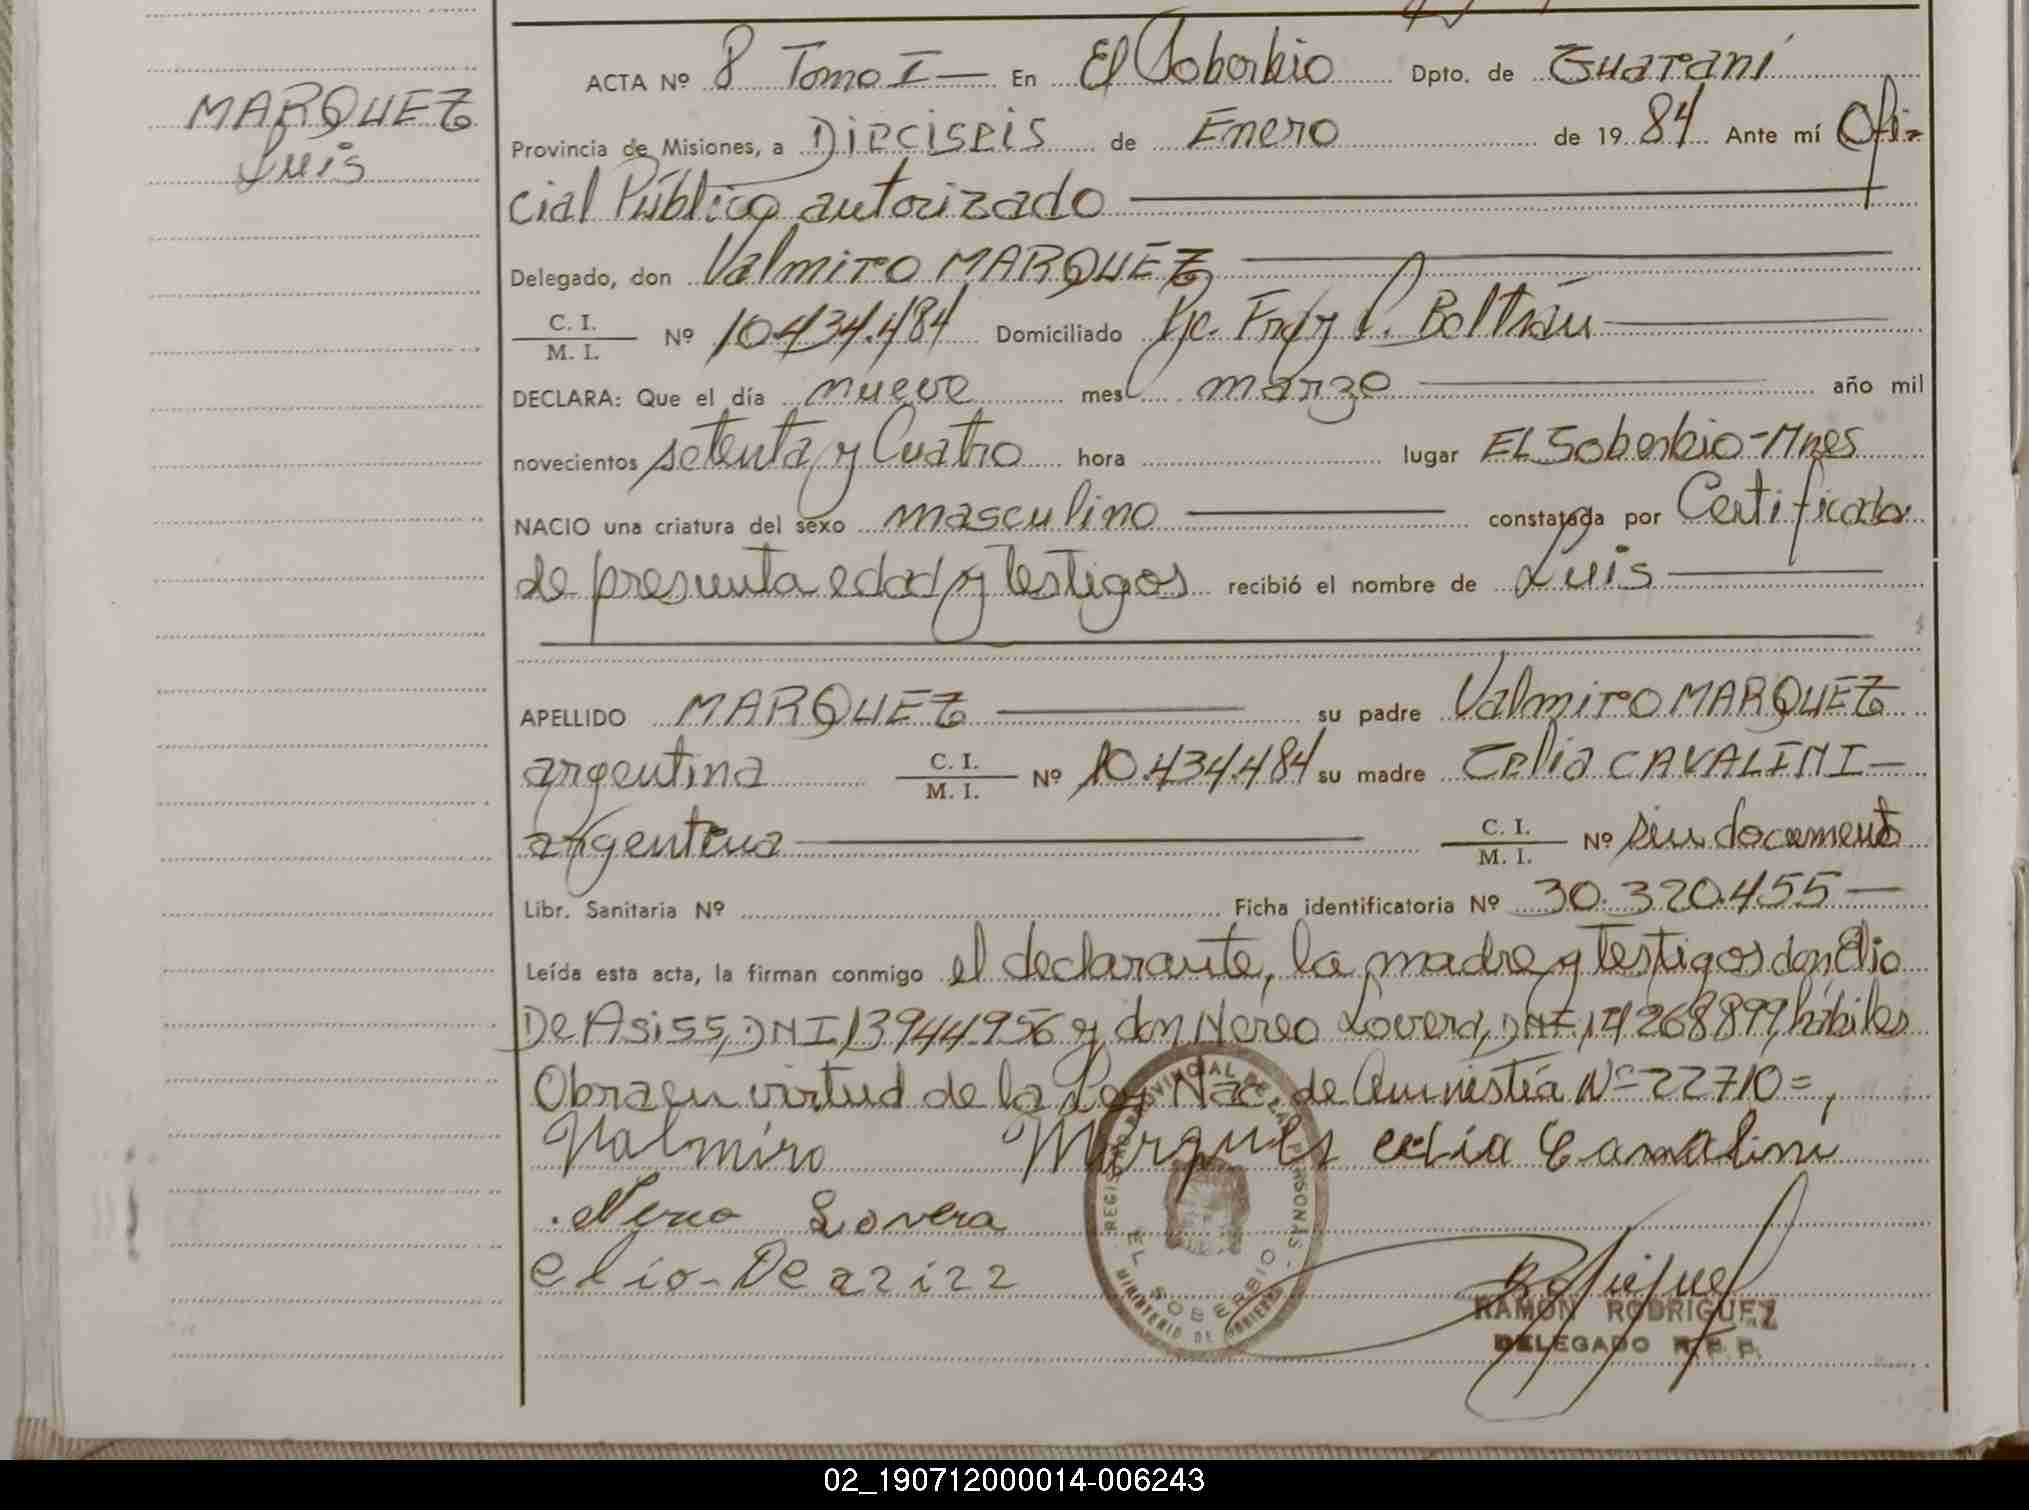 MARQUEZ
Luis
ACTA Nº 8 Tomo I — En El Soberbio Dpto. de Guaraní
Provincia de Misiones, a Dieciseis de Enero de 1984 Ante mí Ofi-
cial Público autorizado
Delegado, don Valmiro MARQUEZ
C. I.
M. I. Nº 10.434.484 Domiciliado Pje. Fray L. Beltrán
DECLARA: Que el día nueve mes marzo año mil
novecientos setenta y Cuatro hora lugar EL Soberbio-Mnes
NACIO una criatura del sexo masculino constatada por Certificado
de presunta edad y testigos recibió el nombre de Luis
APELLIDO MARQUEZ su padre Valmiro MARQUEZ
argentina C. I.
M. I. Nº 10.434.484 su madre Celia CAVALINI —
argentina C. I.
M. I. Nº sin documento
Libr. Sanitaria Nº Ficha identificatoria Nº 30.320.455 —
Leída esta acta, la firman conmigo el declarante, la madre y testigos don Elio
De Asiss, DNI 13944956 y don Nereo Lovera, DNI, 14268899, hábiles
Obra en virtud de la Ley Nac. de Amnistía Nº 22710=,
Valmiro Marques celia Camalini
Nereo Lovera
elio-De azizz
REGISTRO PROVINCIAL DE LAS PERSONAS
EL SOBERBIO
MINISTERIO DE GOBIERNO
RAMON RODRIGUEZ
DELEGADO R.P.P.
02_190712000014-006243